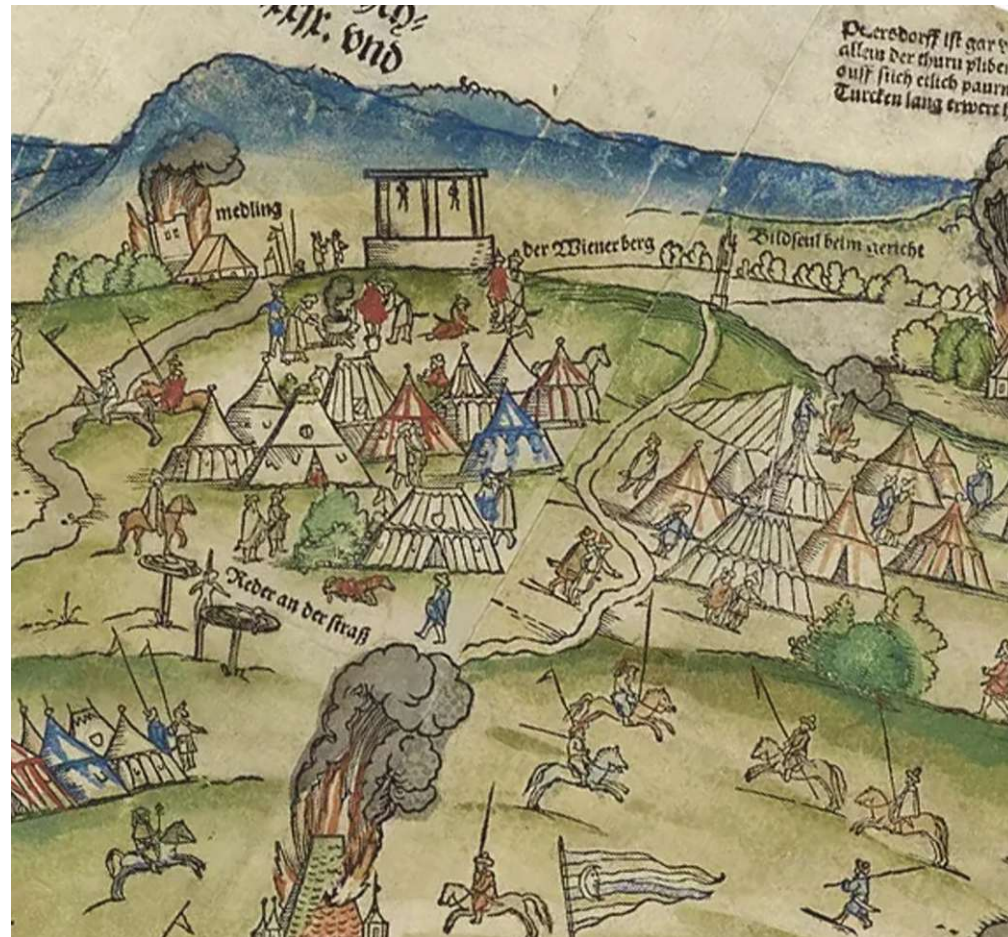 vnd
Petersdorff ist gar
allein der thurn pliben
auff sich etlich paurn
Turcken lang erwert
medling
der Wiener berg
Bildseul beim gericht
Reder an der straß